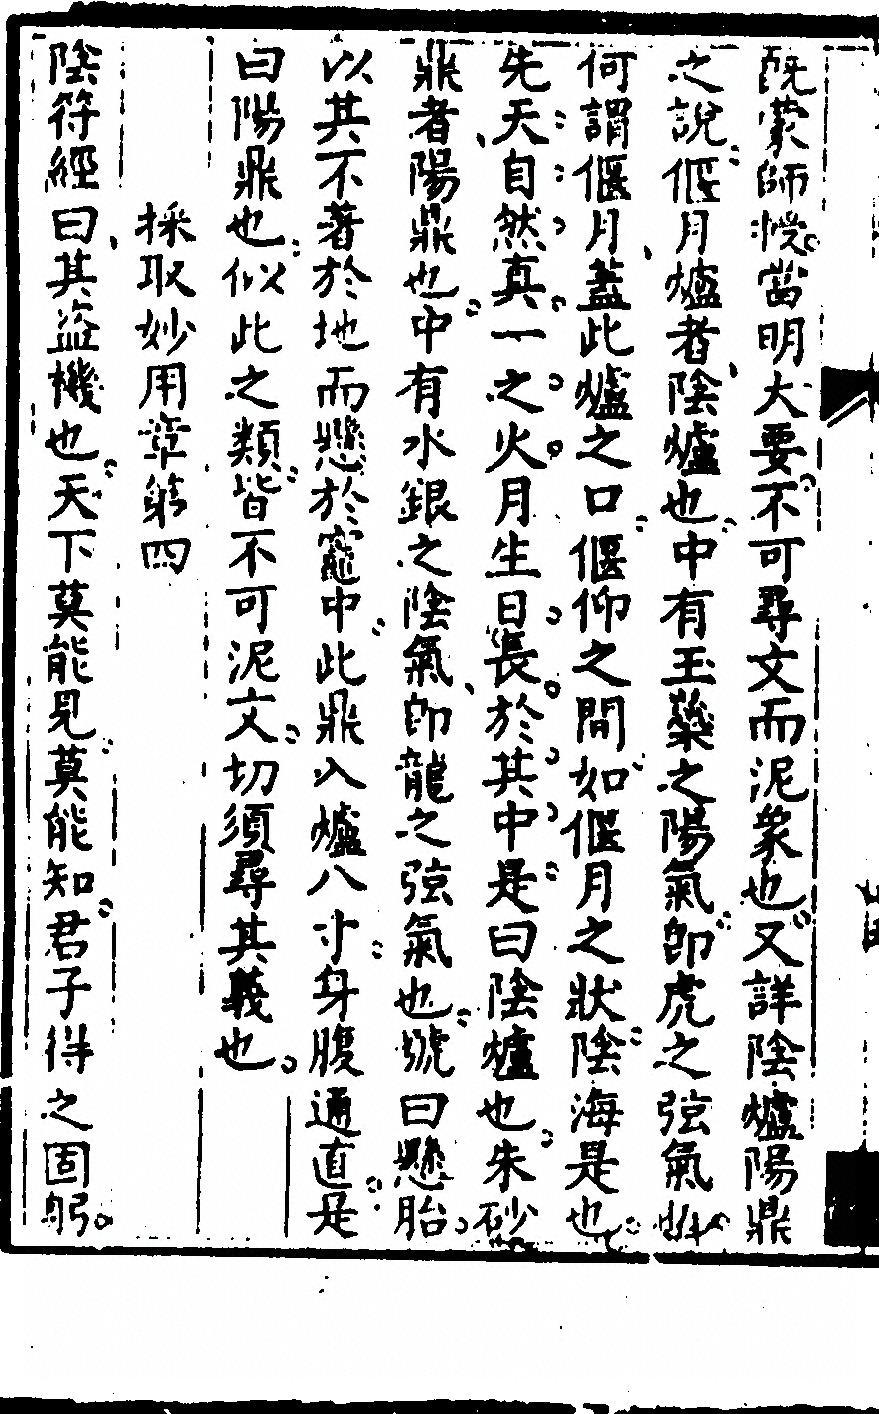 既蒙師授當明大要不可尋文而泥象也又詳陰爐陽鼎
之說偃月爐者陰爐也中有玉蘂之陽氣即虎之弦氣也
何謂偃月蓋此爐之口偃仰之間如偃月之狀陰海是也
先天自然真一之火月生日長於其中是曰陰爐也朱砂
鼎者陽鼎也中有水銀之陰氣即龍之弦氣也號曰懸胎
以其不著於地而懸於竈中此鼎入爐八寸身腹通直是
曰陽鼎也似此之類皆不可泥文切須尋其義也
採取妙用章第四
陰符經曰其盜機也天下莫能見莫能知君子得之固躬